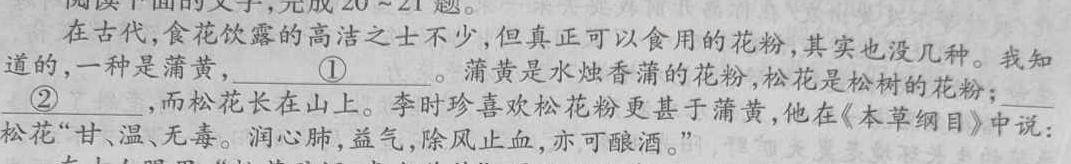 阅读下面的文字,完成20~21题。
在古代,食花饮露的高洁之士不少,但真正可以食用的花粉,其实也没几种。我知
道的,一种是蒲黄,____①____。蒲黄是水烛香蒲的花粉,松花是松树的花粉;__
__②____,而松花长在山上。李时珍喜欢松花粉更甚于蒲黄,他在《本草纲目》中说:
松花“甘、温、无毒。润心肺,益气,除风止血,亦可酿酒。”